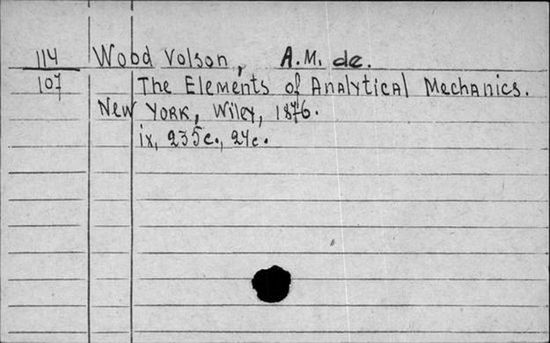 114 Wood Volson, A.M. de.
107 The Elements of Analytical Mechanics.
New York, Wiley, 1876.
ix, 235c., 24c.